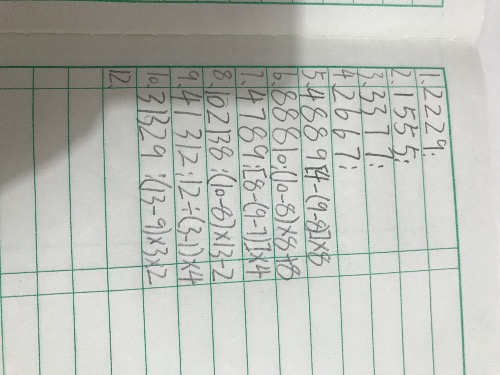 1. 2 2 2 9:
2. 1 5 5 5:
3. 3 3 7 7:
4. 2 6 6 7:
5. 4 8 8 9 [4-(9-8)]×8
6. 8 8 8 10:(10-8)×8+8
7. 4 7 8 9:[8-(9-7)]×4
8. 10 2 13 8:(10-8)×13-2
9. 4 1 3 12:12÷(3-1)×4
10. 3 13 2 9:(13-9)×3×2
12.